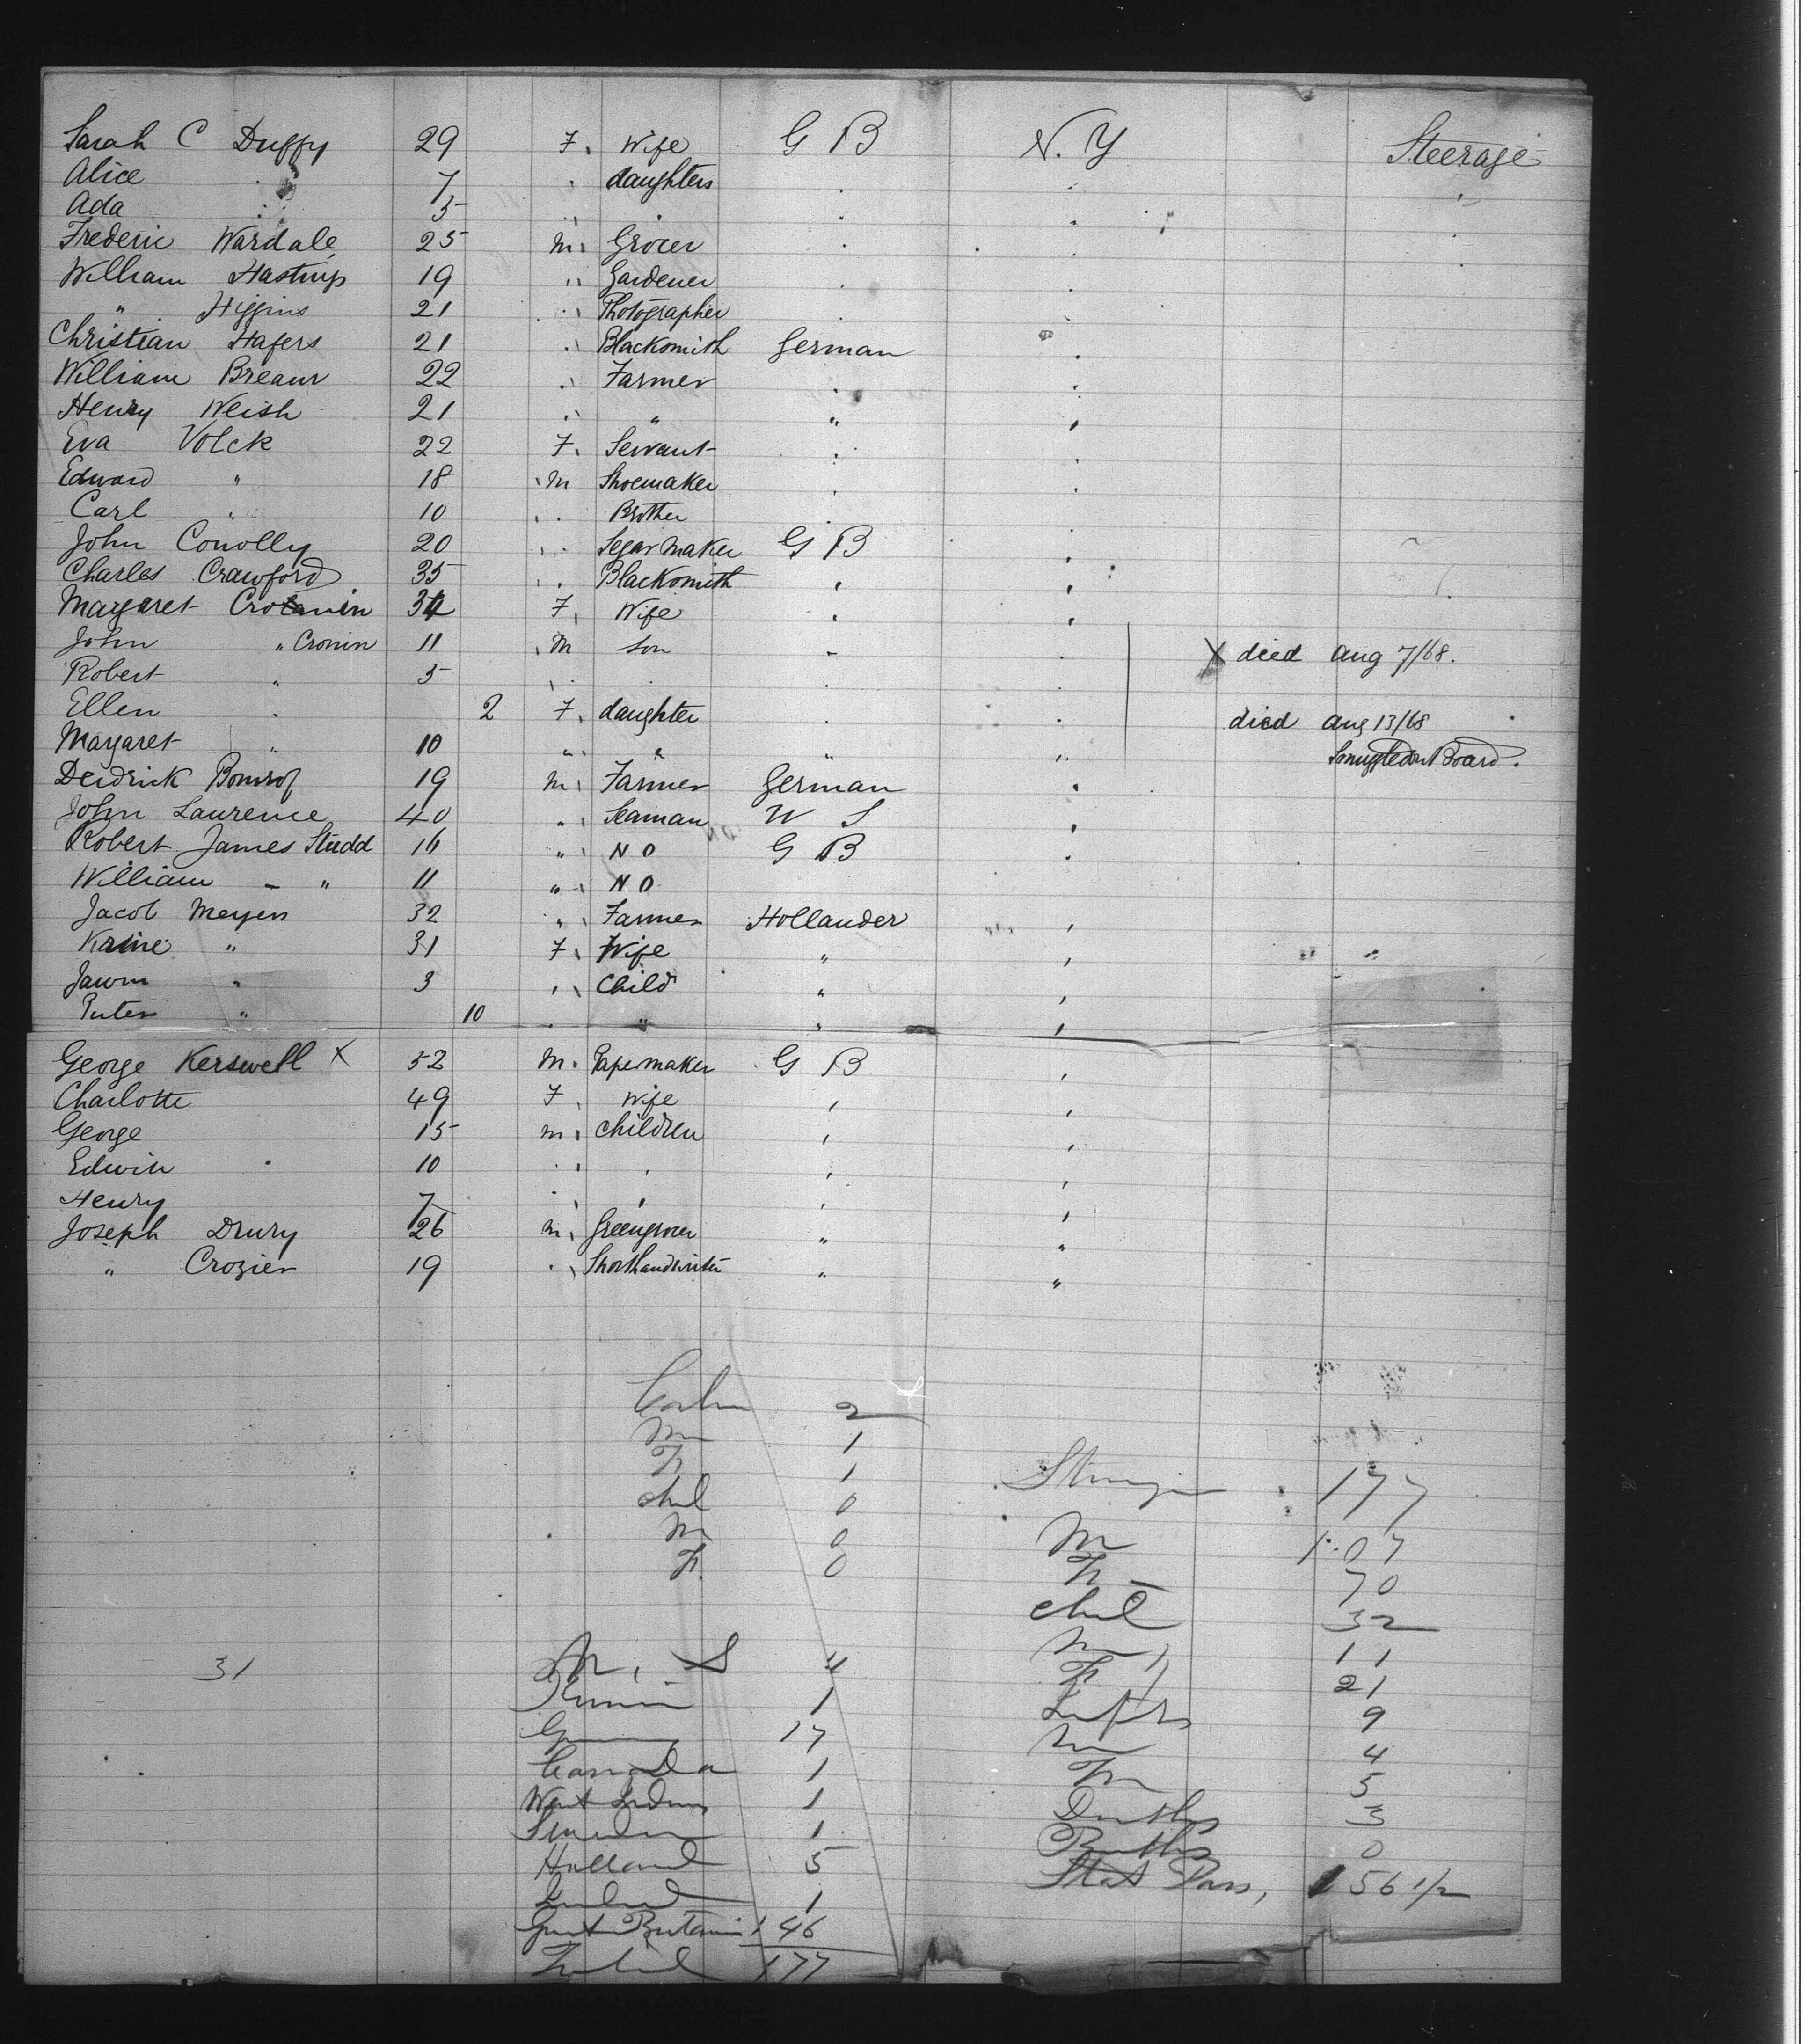 Sarah C Duffy 29 F. Wife G B N. Y Steerage
Alice 7 daughters
Ada 5
Frederic Wardale 25 M. Grocer
William Hastings 19 " Gardener
" Higgins 21 Photographer
Christian Hafers 21 Blacksmith German
William Breaur 22 Farmer
Henry Weish 21 " "
Eva Volck 22 F. Servant
Edward " 18 M Shoemaker
Carl " 10 Brother
John Conolly 20 Segar Maker G B
Charles Crawford 35 Blacksmith
Margaret 34 F. Wife
John " Cronin 11 M son X died Aug 7/68.
Robert " 5
Ellen 2 F. daughter died Aug 13/68
Margaret " 10 " " " " Smugled on Board.
Deidrick 19 M. Farmer German
John Laurence 40 " Seaman
Robert James Studd 16 " N O G B
William - " 11 " N O
Jacob Meyers 32 " Farmer Hollander
Krine " 31 F. Wife "
" 3 Child "
" 10 " "
George Kerswell X 52 M. Papermaker G B
Charlotte 49 F. Wife
George 15 M. Children
Edwin 10
Henry 7
Joseph Drury 26 M. Greengrocer " "
" Crozier 19 Shorthandwriter " "
2
M 1
F 1
chil 0 177
M 0 M 107
F. 0 F 70
Chil 32
M 11
31 4 F 21
1 9
17 M 4
Canada 1 F 5
West Indies 1 Deaths 3
1 Births 0
Holland 5 Stat Pass, 156 1/2
1
Great Britain 146
Total 177